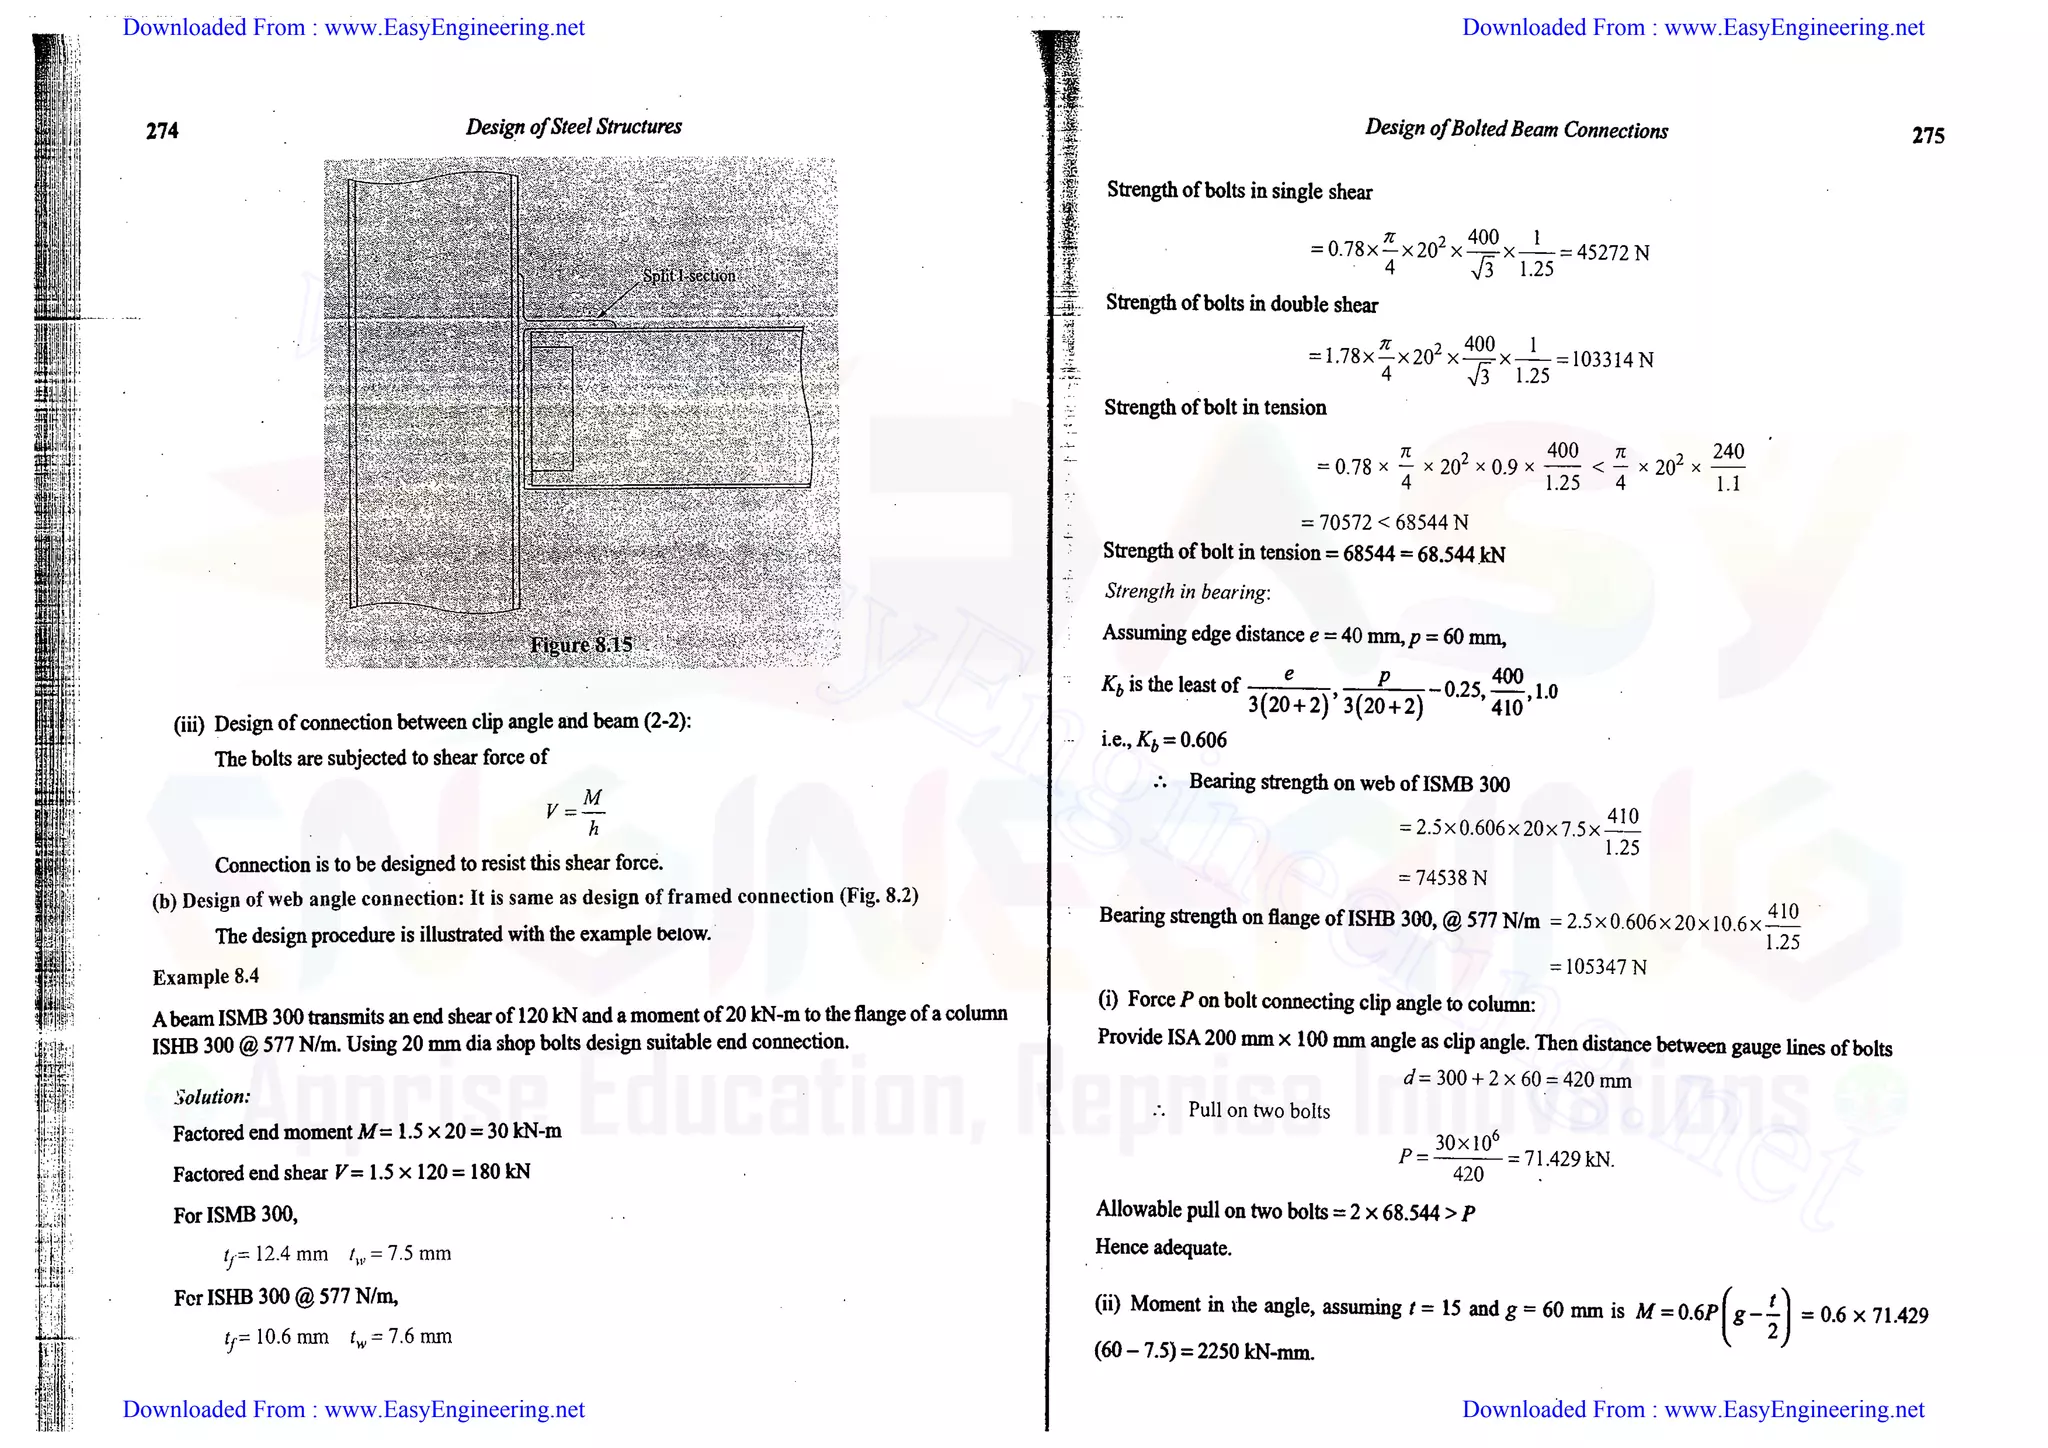 Downloaded From : www.EasyEngineering.net
274
Design of Steel Structures
Split I-section
Figure 8.15
(iii) Design of connection between clip angle and beam (2-2):
The bolts are subjected to shear force of
V = M/h
Connection is to be designed to resist this shear force.
(b) Design of web angle connection: It is same as design of framed connection (Fig. 8.2)
The design procedure is illustrated with the example below.
Example 8.4
A beam ISMB 300 transmits an end shear of 120 kN and a moment of 20 kN-m to the flange of a column
ISHB 300 @ 577 N/m. Using 20 mm dia shop bolts design suitable end connection.
Solution:
Factored end moment M = 1.5 × 20 = 30 kN-m
Factored end shear V = 1.5 × 120 = 180 kN
For ISMB 300,
t_f = 12.4 mm t_w = 7.5 mm
For ISHB 300 @ 577 N/m,
t_f = 10.6 mm t_w = 7.6 mm
Downloaded From : www.EasyEngineering.net
Downloaded From : www.EasyEngineering.net
Design of Bolted Beam Connections
275
Strength of bolts in single shear
= 0.78 × π/4 × 20² × 400/√3 × 1/1.25 = 45272 N
Strength of bolts in double shear
= 1.78 × π/4 × 20² × 400/√3 × 1/1.25 = 103314 N
Strength of bolt in tension
= 0.78 × π/4 × 20² × 0.9 × 400/1.25 < π/4 × 20² × 240/1.1
= 70572 < 68544 N
Strength of bolt in tension = 68544 = 68.544 kN
Strength in bearing:
Assuming edge distance e = 40 mm, p = 60 mm,
K_b is the least of e/3(20+2), p/3(20+2) − 0.25, 400/410, 1.0
i.e., K_b = 0.606
∴ Bearing strength on web of ISMB 300
= 2.5 × 0.606 × 20 × 7.5 × 410/1.25
= 74538 N
Bearing strength on flange of ISHB 300, @ 577 N/m = 2.5 × 0.606 × 20 × 10.6 × 410/1.25
= 105347 N
(i) Force P on bolt connecting clip angle to column:
Provide ISA 200 mm × 100 mm angle as clip angle. Then distance between gauge lines of bolts
d = 300 + 2 × 60 = 420 mm
∴ Pull on two bolts
P = 30×10⁶/420 = 71.429 kN.
Allowable pull on two bolts = 2 × 68.544 > P
Hence adequate.
(ii) Moment in the angle, assuming t = 15 and g = 60 mm is M = 0.6P(g − t/2) = 0.6 × 71.429
(60 – 7.5) = 2250 kN-mm.
Downloaded From : www.EasyEngineering.net
EASY
ENGINEERING
Apprise Education, Reprise Innovations
www.EasyEngineering.net